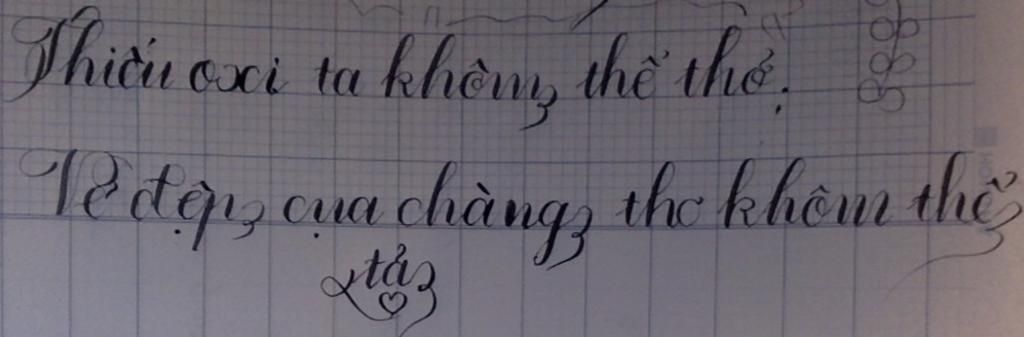 Thiếu oxi ta không thể thở.
Vẻ đẹp của chàng thơ khôn thể
tả